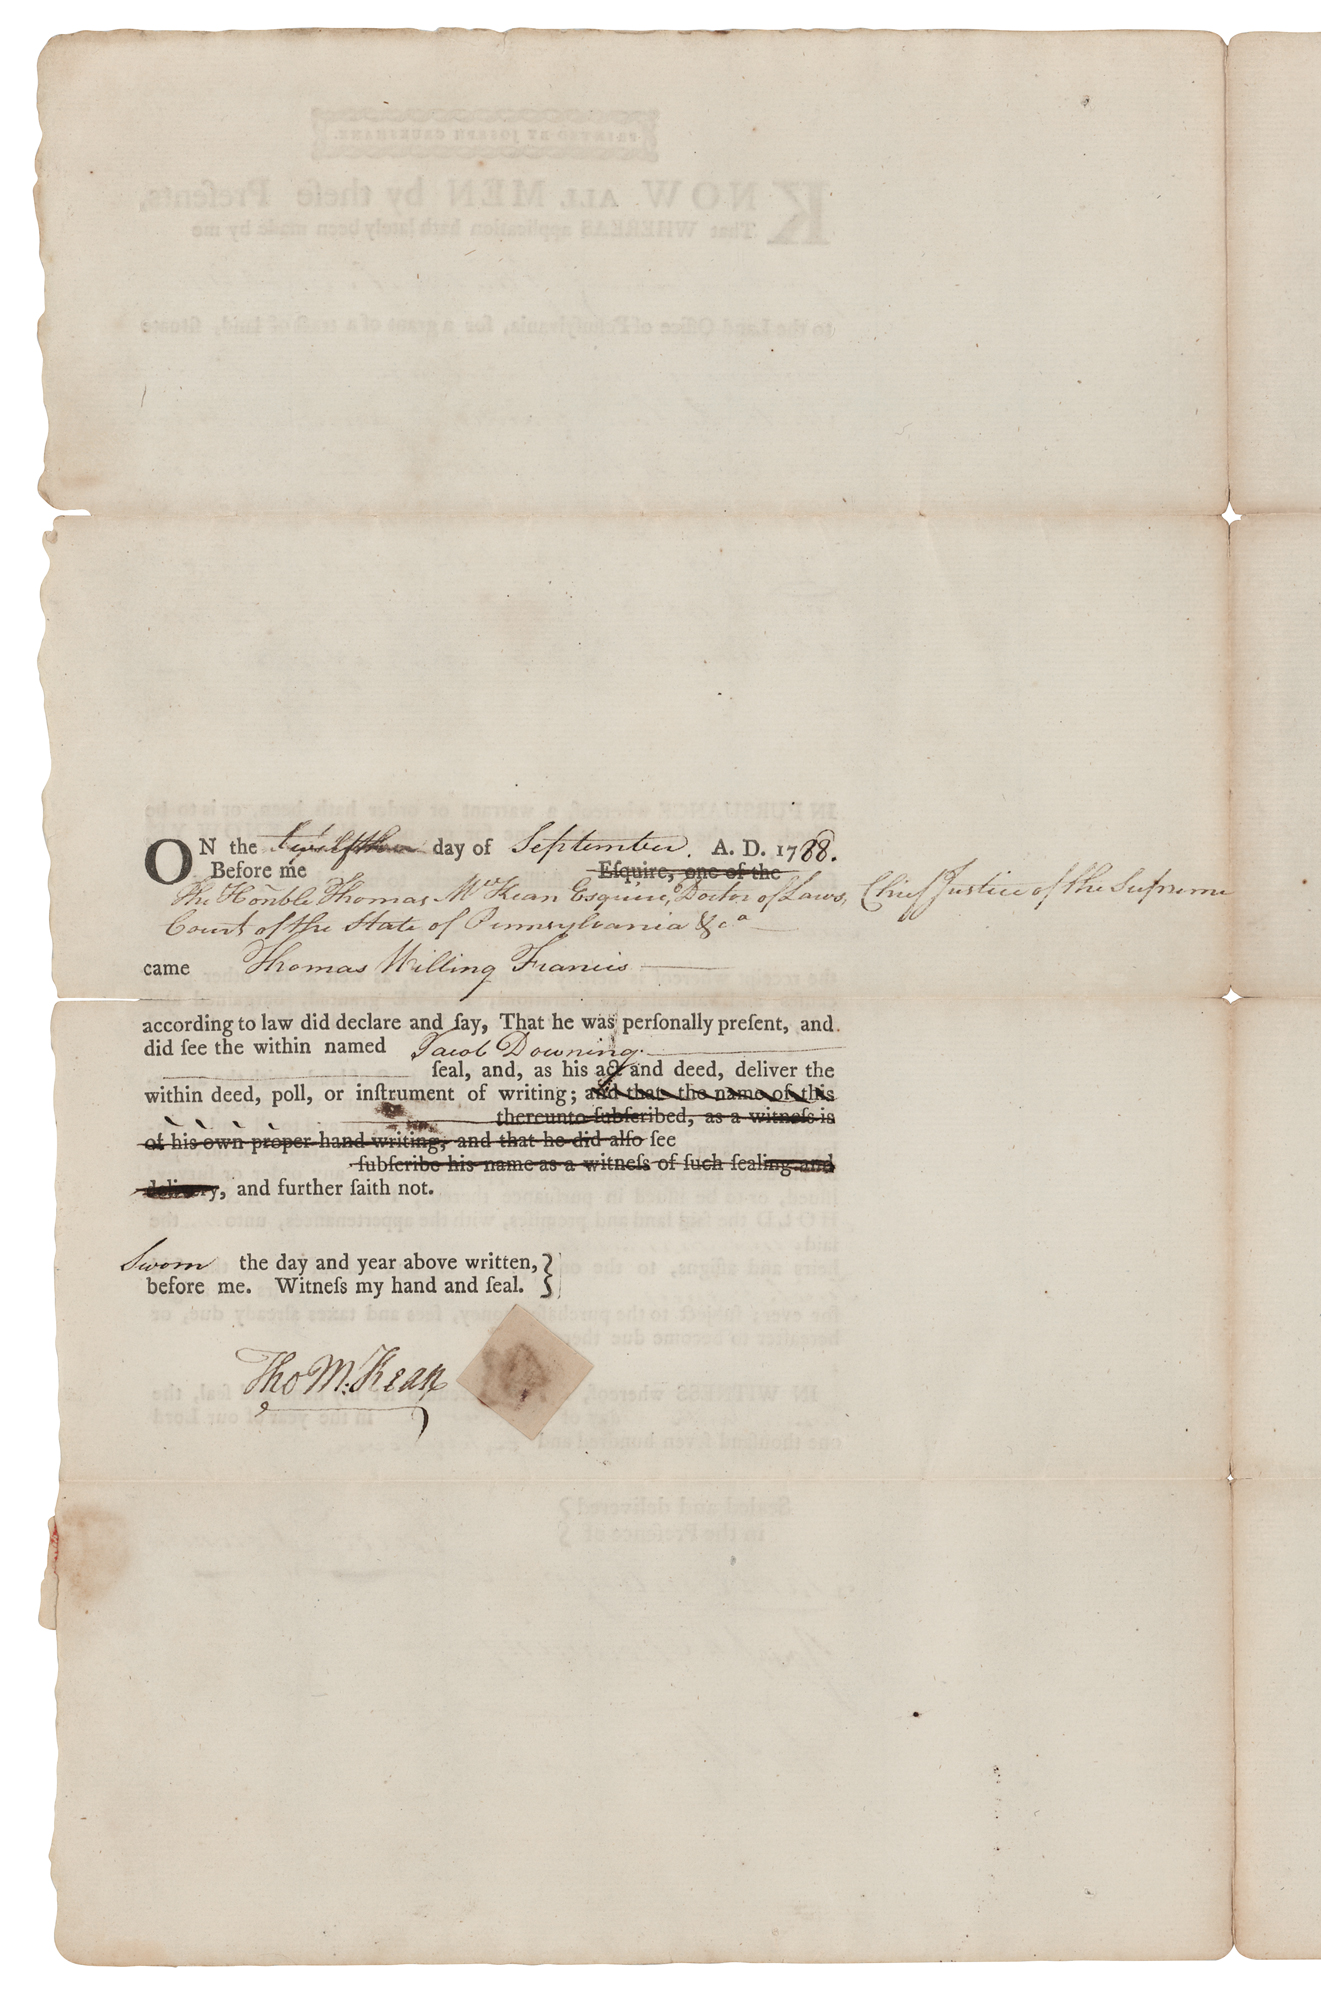 ON the twelfth day of September. A. D. 1788.
Before me Eſquire, one of the
The Honble Thomas McKean Esquire, Doctor of Laws, Chief Justice of the Supreme
Court of the State of Pennsylvania &ca
came Thomas Willing Francis
according to law did declare and ſay, That he was perſonally preſent, and
did ſee the within named Jacob Downing
ſeal, and, as his act and deed, deliver the
within deed, poll, or inſtrument of writing; and that the name of this
thereunto ſubſcribed, as a witneſs is
of his own proper hand writing, and that he did alſo ſee
ſubſcribe his name as a witneſs of ſuch ſealing and
delivery, and further ſaith not.
Sworn the day and year above written,
before me. Witneſs my hand and ſeal.
Tho M:Kean